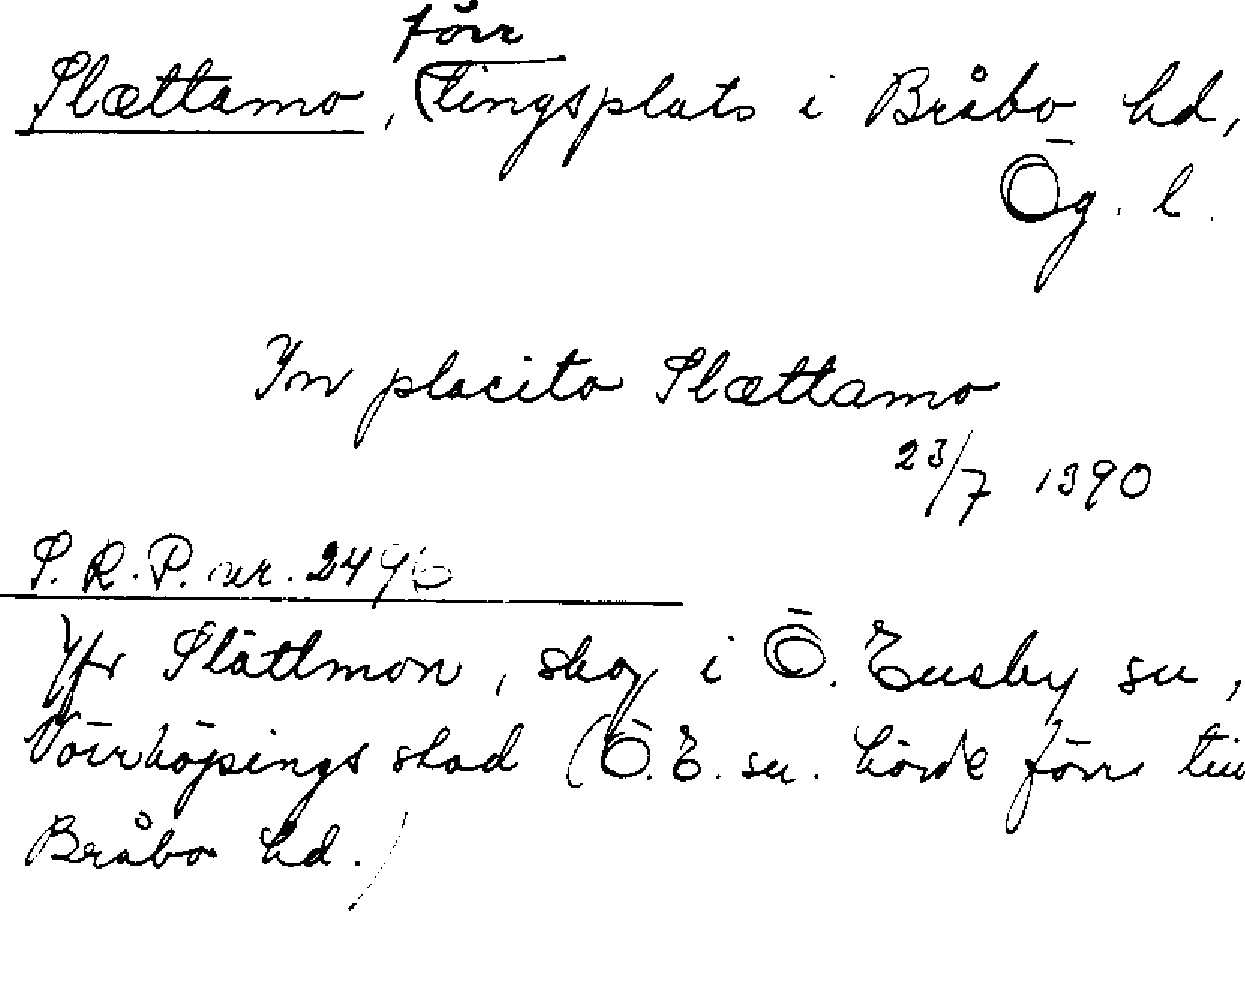 förr
Slættamo, (tingsplats i Bråbo hd,
Ög. l.
In placito Slættamo
23/7 1390
S. R. P. nr. 2496
Jfr Slättmon, skog i Ö. Eneby sn,
Norrköpings stad (Ö. E. sn. hörde förr till
Bråbo hd.)